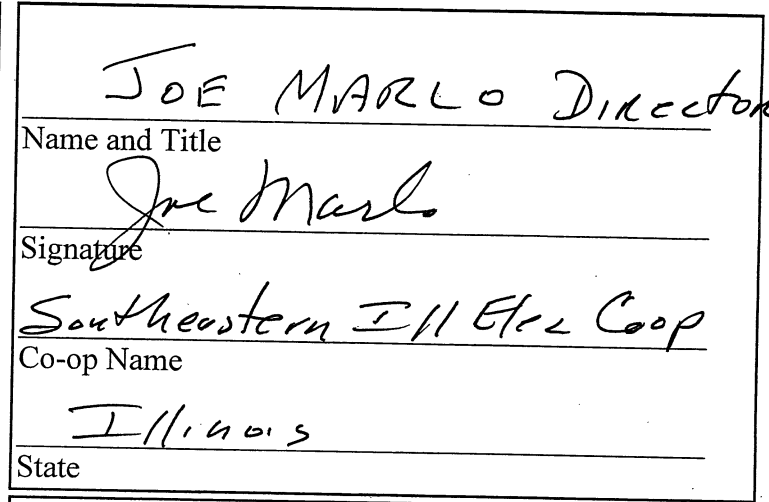 JOE MARLO DIRECTOR
Name and Title
Joe Marlo
Signature
Southeastern Ill Elec Coop
Co-op Name
Illinois
State